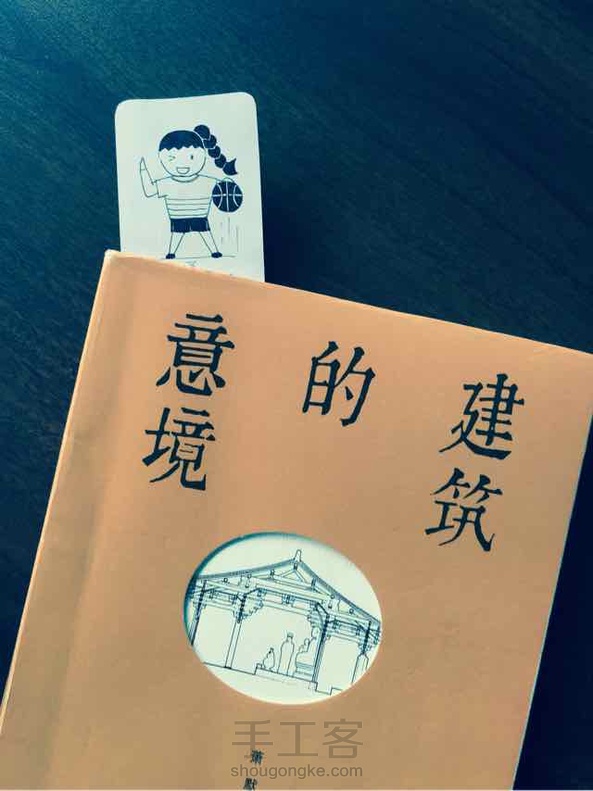 建筑
的
意境
萧默
手工客
shougongke.com